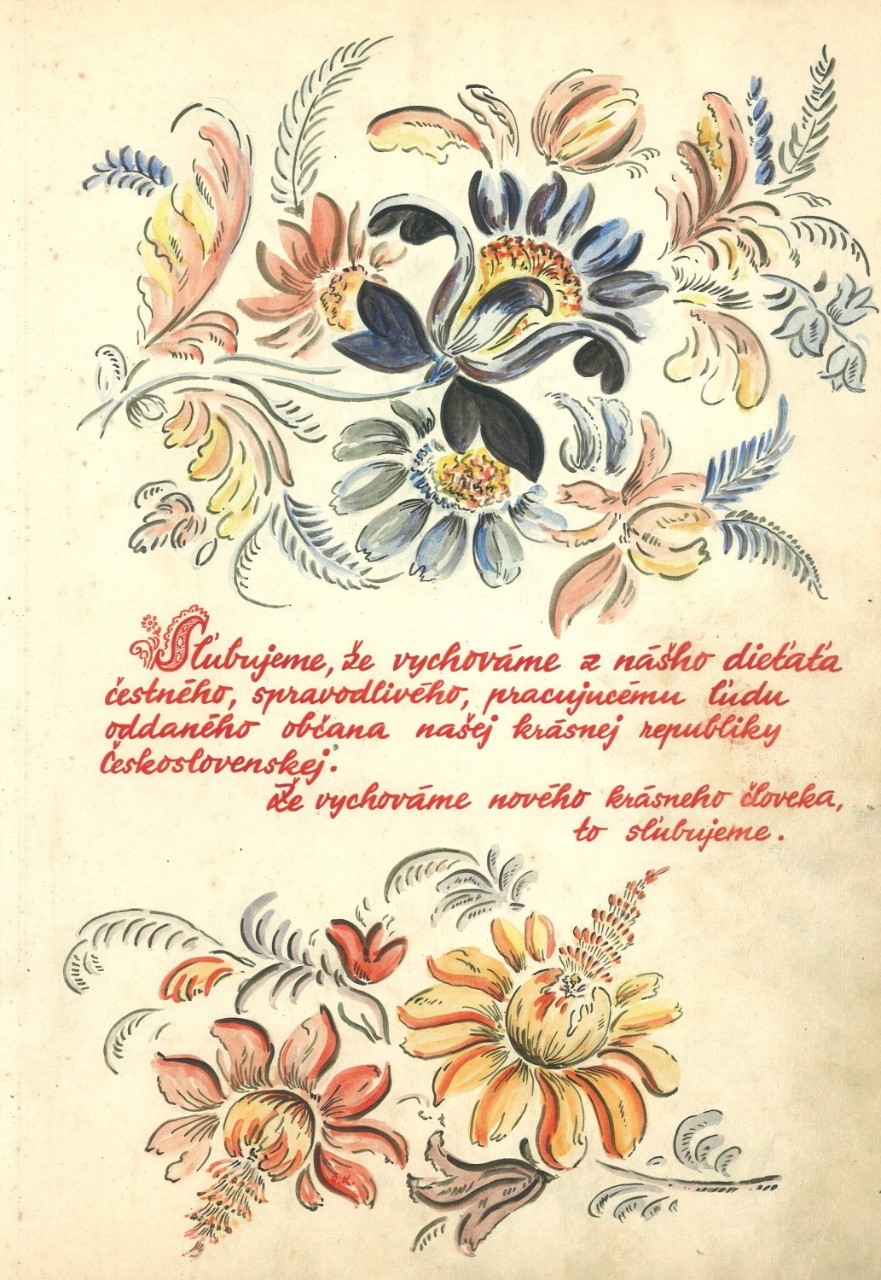 Sľubujeme, že vychováme z nášho dieťaťa
čestného, spravodlivého, pracujucému ľudu
oddaného občana našej krásnej republiky
Československej.
Že vychováme nového krásneho človeka,
to sľubujeme.